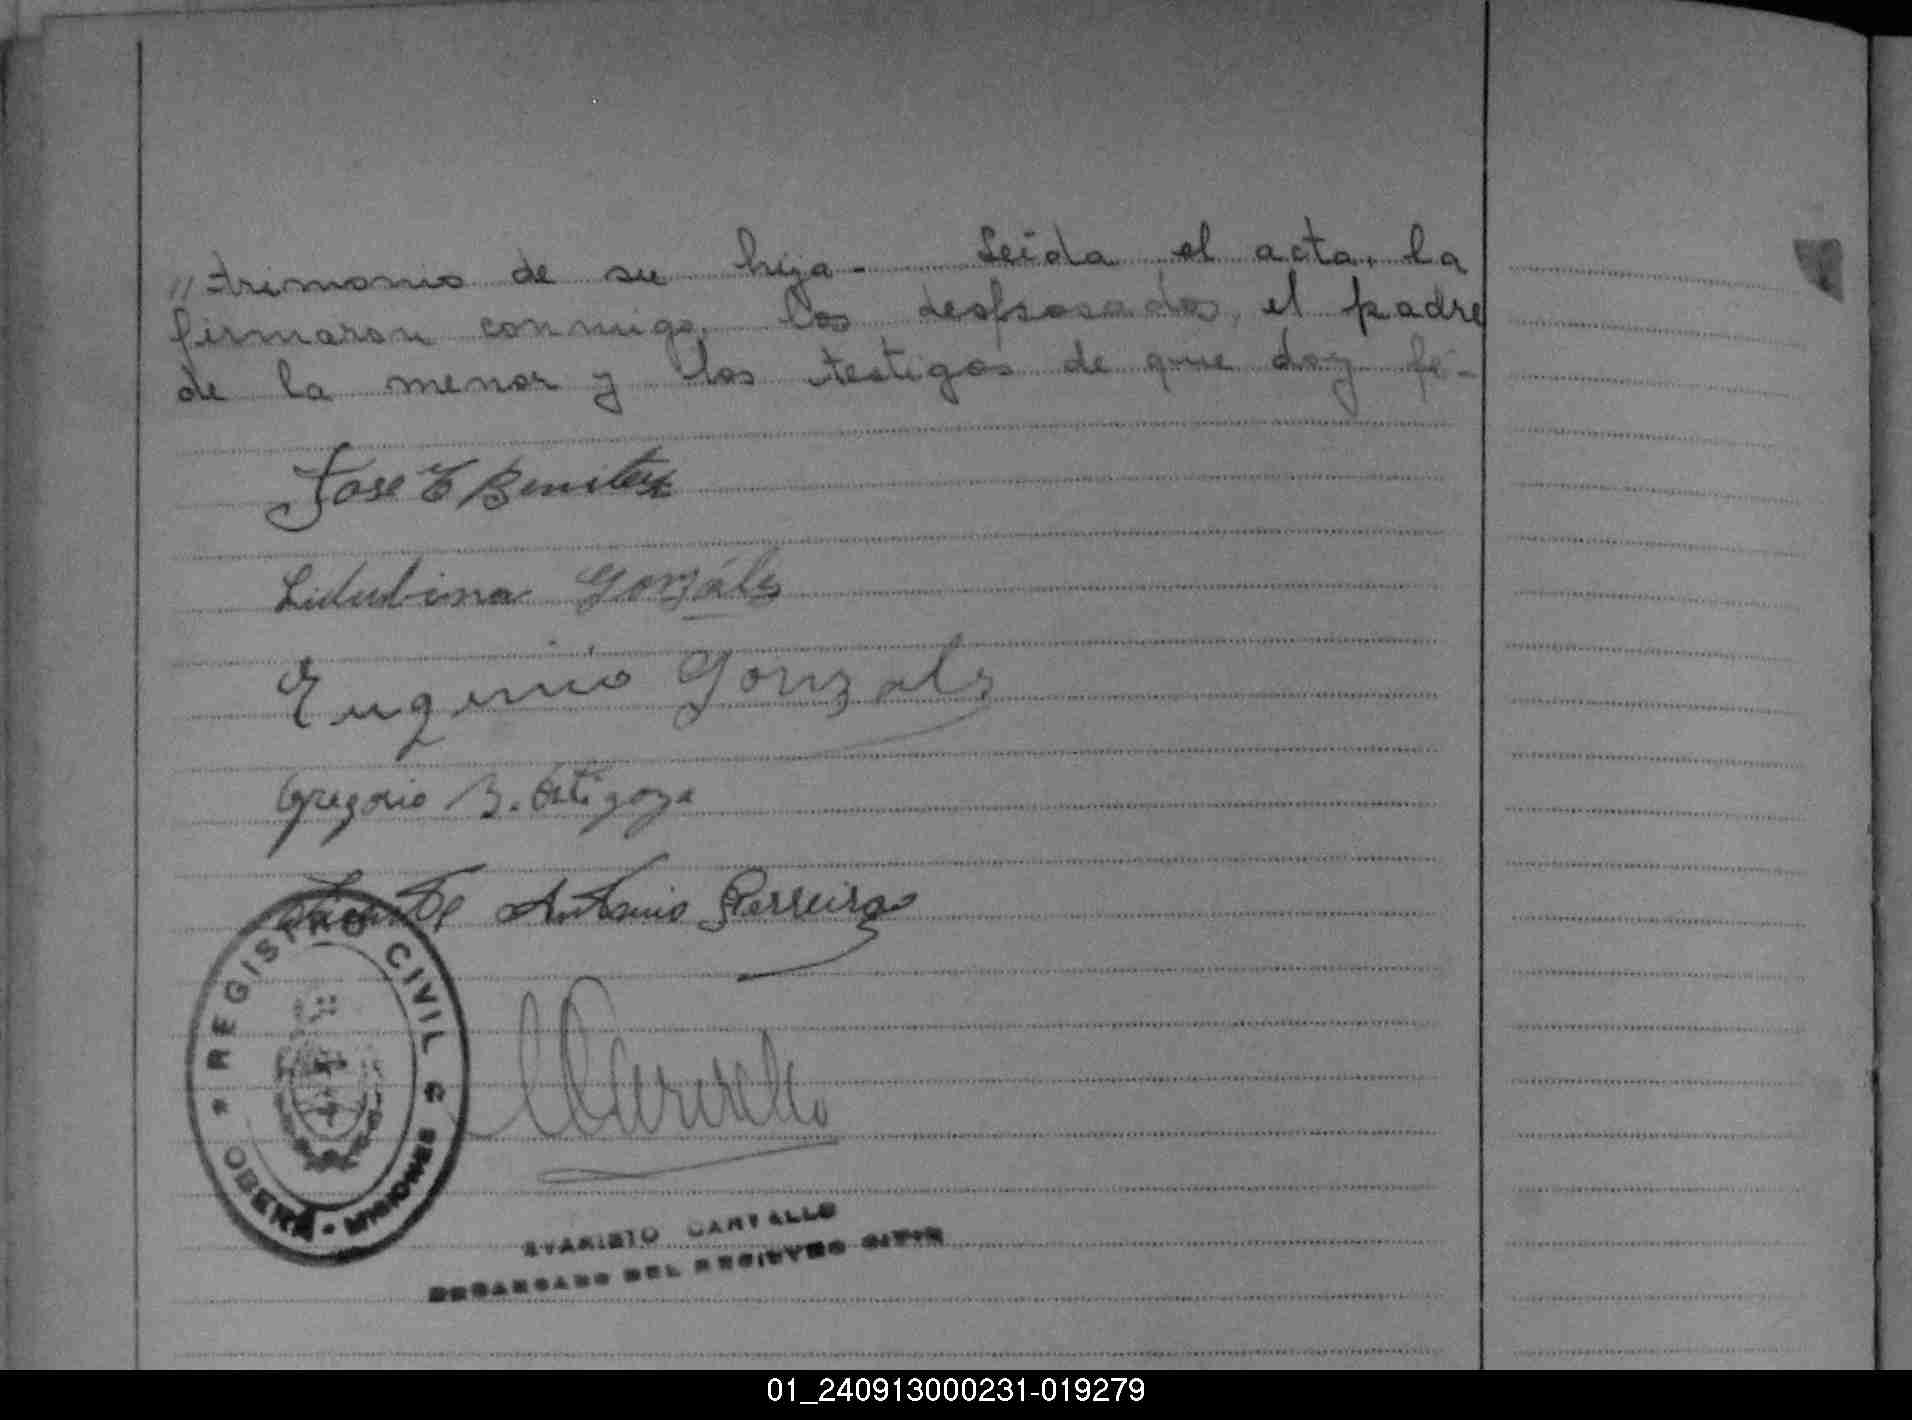 "trimonio de su hija - Leída el acta, la
firmaron conmigo, los desposados, el padre
de la menor y los testigos de que doy fé -
Jose E Benitez
Lidubina Gonzálz
Eugenio Gonzalz
Gregorio B. Ortigoza
Antonio Ferreira
* REGISTRO CIVIL *
OBERÁ - MISIONES
EVARISTO CARVALLO
ENCARGADO DEL REGISTRO CIVIL
01_240913000231-019279